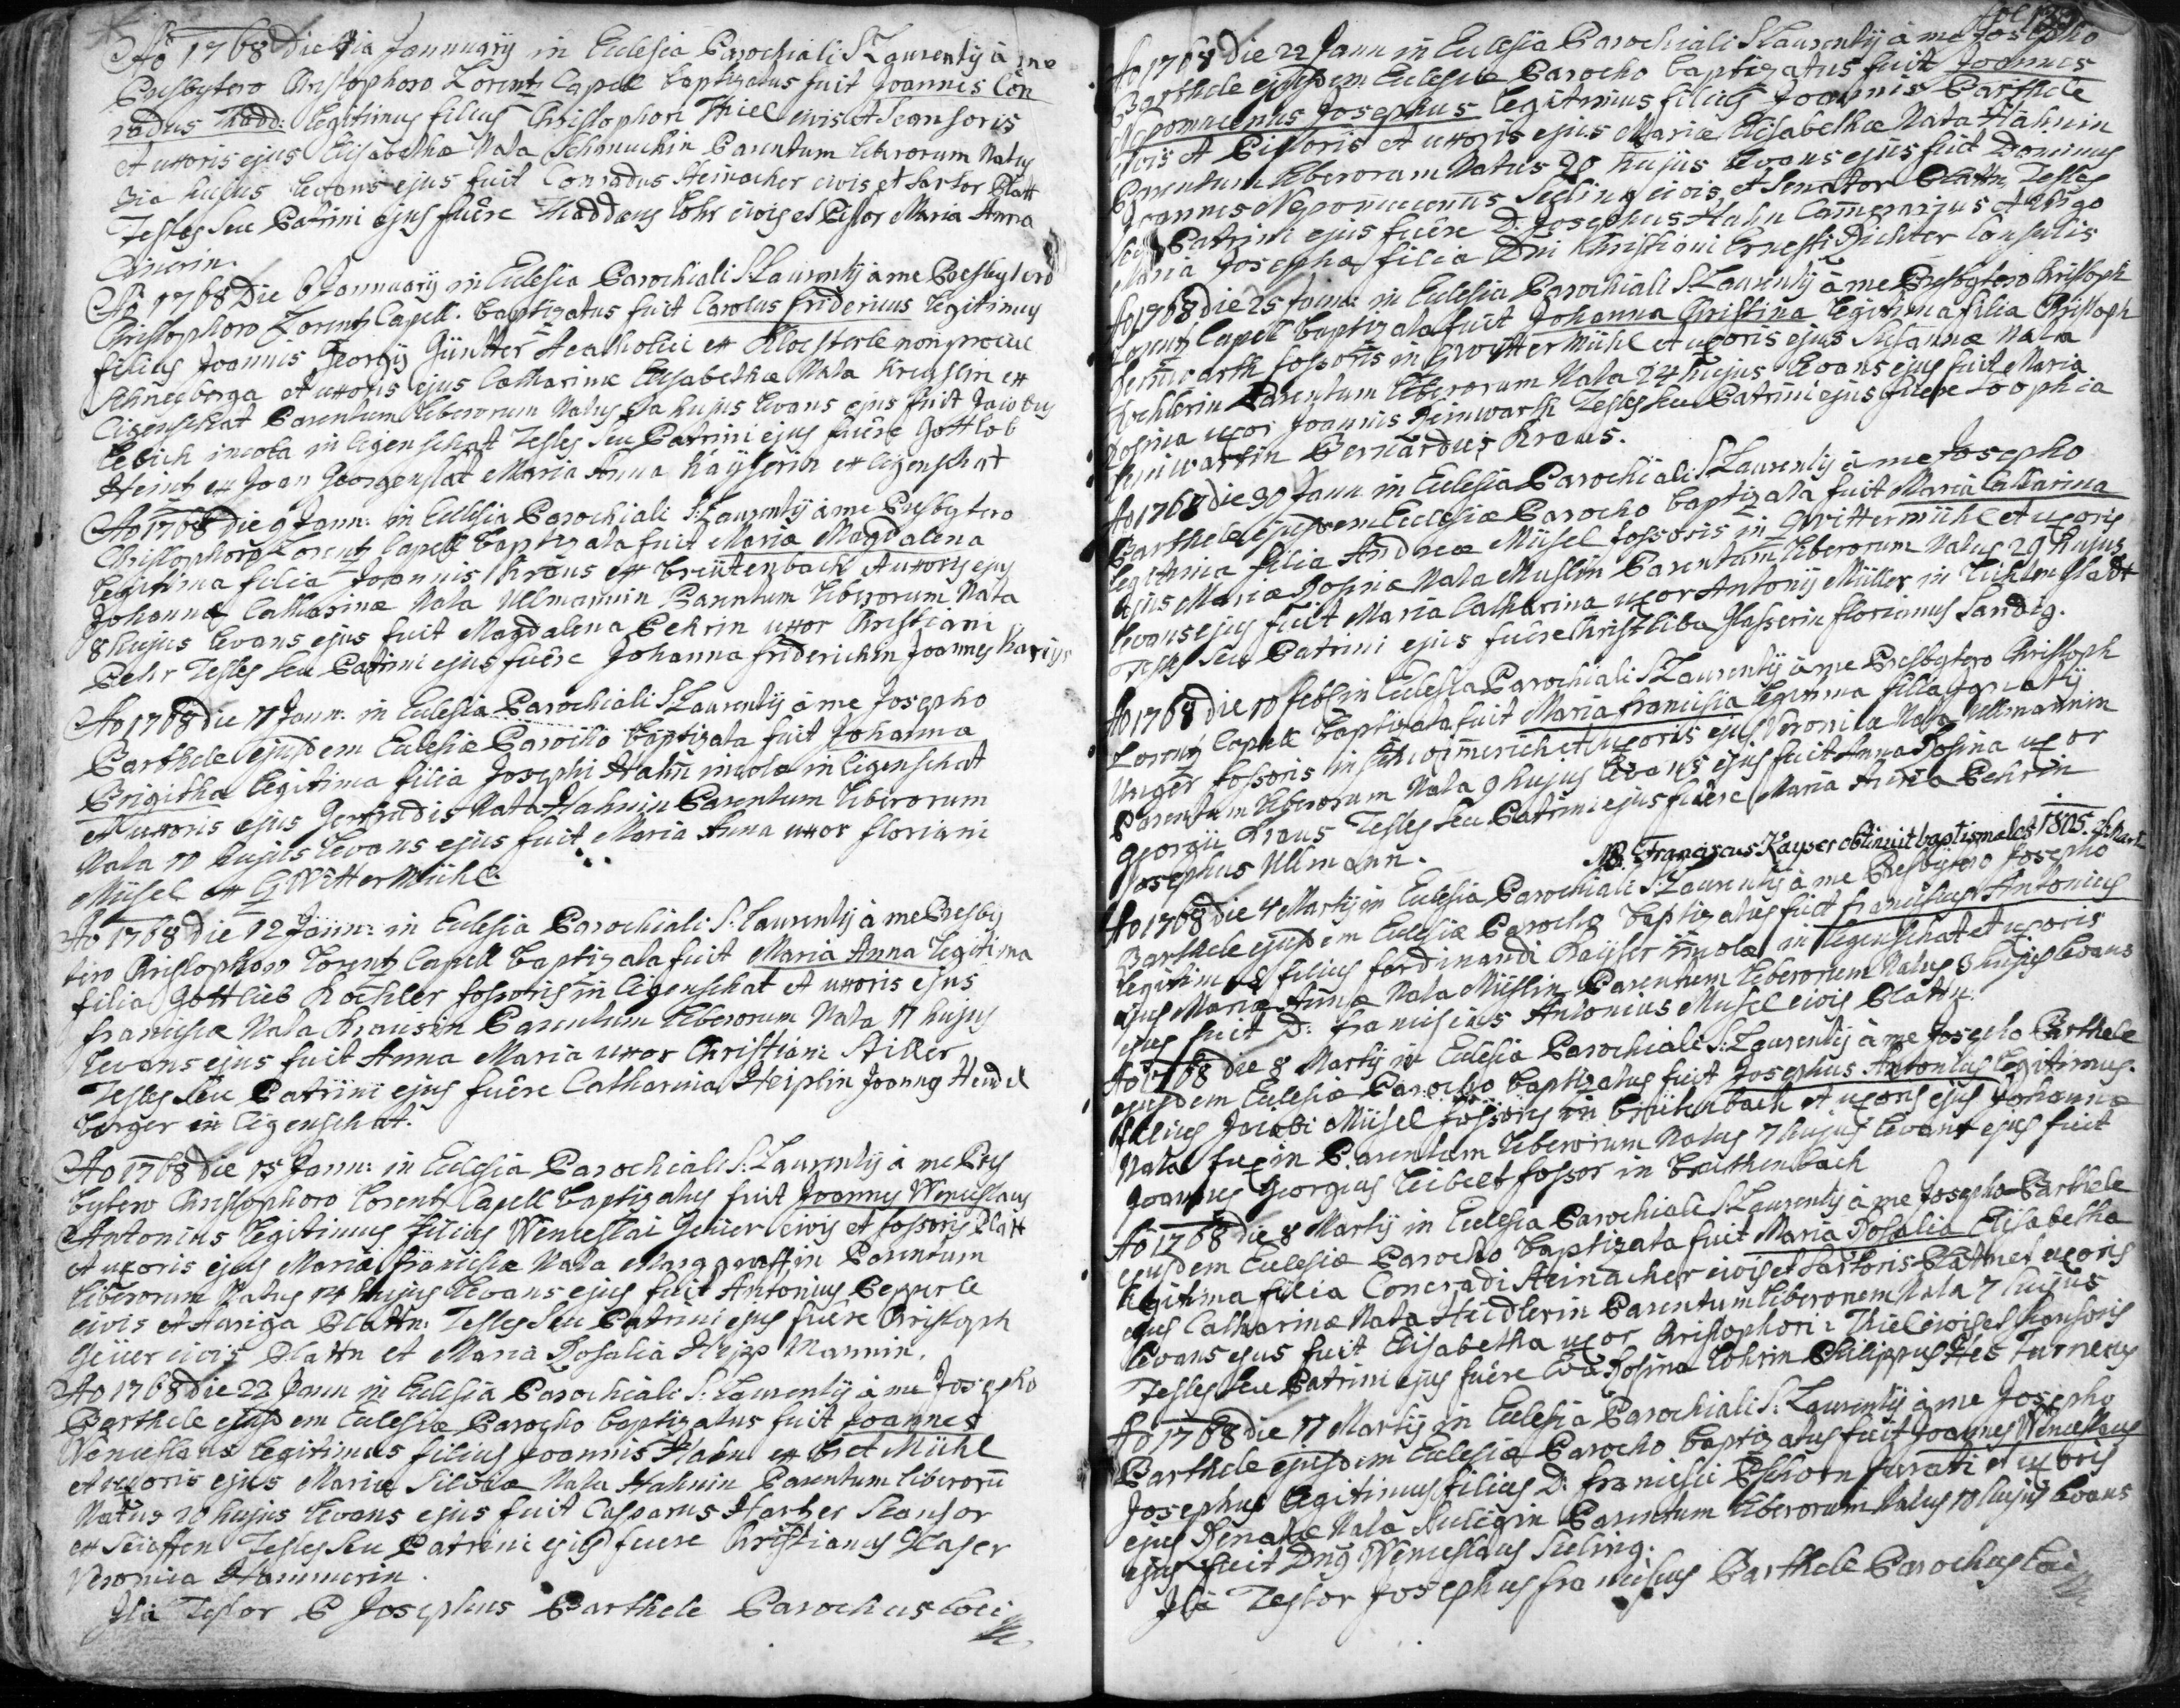 Ao 1768 Die 3ia Januarij in Eclesia Parochiali S: Laurentij à me
Presbytero Christophoro Lorentz Capell baptizatus fuit Joannes Con
radus Thadd: legitimus filius Christophori Thiel civis et Scansoris
et uxoris ejus Elisabethæ Nata Schmuchin Parentum liberorum Natus
3ia hujus levans ejus fuit Conradus Steinacher civis et Sartor Platt
Testes seu Patrini ejus fuêre Thaddæus Lohr civis et Pistor Maria Anna
Ao 1768 Die 6 Januarij in Eclesia Parochiali S: Laurentij à me Presbytero
Christophoro Lorentz Capell. baptizatus fuit Carolus fridericus legitimus
filius Joannis Georgij Güntter Acatholici ex Klösterle non procul
Schneeberga et uxoris ejus Catharinæ Elisabethæ Nata Kreuslin ex
Eigenschat Parentum liberorum Natus hujus levans ejus fuit Jacobus
Lebich incola in Eigenschat Testes seu Patrini ejus fuêre Gottlob
Heintz ex Joan Georgenstat Maria Anna Käyserin ex Eigenschat
Ao 1768 Die 9 Jann: in Eclesia Parochiali S: Laurentij à me Presbytero
Christophoro Lorentz Capell baptizata fuit Maria Magdalena
legitima filia Joannis Kraus ex breitenbach et uxoris ejus
Johannæ Catharinæ Nata Ullmannin Parentum liberorum Nata
8 hujus levans ejus fuit Magdalena Pehrin uxor Christiani
Pehr Testes seu Patrini ejus fuêre Johanna friderichin Joannes
Ao 1768 Die 11 Jann: in Eclesia Parochiali S Laurentij à me Josepho
Barthele ejusdem Eclesiæ Parocho baptizata fuit Johanna
Brigitha legitima filia Josephi Hahn incolæ in Eigenschat
et uxoris ejus Gertrudis Nata Hahnin Parentum liberorum
Nata 11 hujus levans ejus fuit Maria Anna uxor floriani
Müsel ex GWitterMühl
Ao 1768 Die 12 Jann: in Eclesia Parochiali S: Laurentij à me Presby
tero Christophoro Lorentz Capell baptizata fuit Maria Anna legitima
filia Gottlieb Köchler fossoris in Eigenschat et uxoris ejus
franciscæ Nata Krausin Parentum liberorum Nata 11 hujus
levans ejus fuit Anna Maria uxor Christiani Stiller
Testes seu Patrini ejus fuêre Catharina Heiplin Joannes Hendel
berger in Eigenschat.
Ao 1768 Die 15 Jann: in Eclesia Parochiali S: Laurentij à me Pres
bytero Christophoro Lorentz Capell baptizatus fuit Joannes Wenceslaus
Antonius legitimus filius Wenceslai Geüer civis et fossoris Platt
et uxoris ejus Mariæ franciscæ Nata Marggraffin Parentum
liberorum Natus 14 hujus levans ejus fuit Antonius Pepperle
civis et Auriga Plattn: Testes seu Patrini ejus fuêre Christoph
Geüer civis Plattn et Maria Rosalia Mannin.
Ao 1768 Die 22 Jann in Eclesia Parochiali S: Laurentij à me Josepho
Barthele ejusdem Eclesiæ Parocho baptizatus fuit Joannes
Wenceslaus legitimus filius Joannis Hahn ex Bret Mühl
et uxoris ejus Mariæ Silviæ Nata Hahnin Parentum liberorū
Natus 20 hujus levans ejus fuit Casparus Harber Scansor
ex Seiffen Testes seu Patrini ejus fuere Christianus Glaser
Veronica Hammerin.
Ita Testor P Josephus Barthele Parochus Loci
Ao 1768 Die 22 Jann in Eclesia Parochiali S Laurentij à me Josepho
Barthele ejusdem Eclesiæ Parocho baptizatus fuit Joannes
Nepomucenus Josephus legitimus filius Joannis Barthele
civis et Pistoris et uxoris ejus Mariæ Elisabethæ Nata Hahnin
Parentum liberorum Natus 20 hujus levans ejus fuit Dominus
Joannes Nepomucenus Seeling civis et Senator Plattn Testes
seu Patrini ejus fuêre D: Josephus Hahn Camerarius et virgo
Maria Josepha filia Dni Christiani Ernesti Richter Consulis
Ao 1768 die 25 Jann: in Eclesia Parochiali S: Laurentij à me Presbytero Christoph
Lorentz Capell baptizata fuit Johanna Christina legitima filia Christoph
Reinwarth fossoris in GwitterMühl et uxoris ejus Susannæ Nata
Kochlerin Parentum liberorum Nata 24 hujus levans ejus fuit Maria
Rosina uxor Joannis Reinwarth Testes seu Patrini ejus fuere Sophia
Reinwartin Bernardus Kraus.
Ao 1768 die 30 Jann in Eclesia Parochiali S: Laurentij à me Josepho
Barthele ejusdem Eclesiæ Parocho baptizata fuit Maria Catharina
legitima filia Andreæ Müsel fossoris in Gwittermühl et uxoris
ejus Mariæ Rosinæ Nata Muslin Parentum liberorum Natus 29 hujus
levans ejus fuit Maria Catharina uxor Antonij Müller in Lichtenstadt
Testes seu Patrini ejus fuêre Christliba Glasserin florianus Sandig.
Ao 1768 die 10 feb in Eclesia Parochiali S Laurentij à me Presbytero Christoph
Lorentz Capell baptizata fuit Maria francisca legitima filia Ignatij
Unger fossoris in et uxoris ejus Veronica Nata Ullmannin
Parentum liberorum Nata 9 hujus levans ejus fuit Anna Rosina uxor
Georgii Kraus Testes seu Patrini ejus fuêre Maria Anna Pehrin
Josephus Ullmann.
NB. Franciscus Kayser obtinuit baptismales 1805.
Ao 1768 die 4 Martij in Eclesia Parochiali S: Laurentij à me Presbytero Josepho
Barthele ejusdem Eclesiæ Parocho baptizatus fuit franciscus Antonius
legitimus filius ferdinandi Kayser incolæ in Eigenschat et uxoris
ejus Mariæ Annæ Nata Müslin Parentum liberorum Natus 3 hujus levans
ejus fuit D: franciscus Antonius Musel civis Plattn:
Ao 1768 die 8 Martij in Eclesia Parochiali S: Laurentij à me Josepho Barthele
ejusdem Eclesiæ Parocho baptizatus fuit Josephus Antonius legitimus
filius Jacobi Müsel fossoris in breitenbach et uxoris ejus Johannæ
Nata fuxin Parentum liberorum Natus 7 hujus levans ejus fuit
Joannes Georgius Leibelt fossor in Breithenbach
Ao 1768 die 8 Martij in Eclesia Parochiali S Laurentij à me Josepho Barthele
ejusdem Eclesiæ Parocho baptizata fuit Maria Rosalia Elisabetha
legitima filia Concradi Steinacher civis et Sartoris Plattn et uxoris
ejus Catharinæ Nata Heidlerin Parentum liberorum Nata 7 hujus
levans ejus fuit Elisabetha uxor Christophori Thiel civis et Scansoris
Testes seu Patrini ejus fuêre Eva Rosina Lohrin Philippus Hes Turnerus
Ao 1768 die 11 Martij in Eclesia Parochiali S: Laurentij à me Josepho
Barthele ejusdem Eclesiæ Parocho baptizatus fuit Joannes Wenceslaus
Josephus legitimus filius D: francisci Pschorn Jurati et uxoris
ejus Renatæ Nata Parentum liberorum Natus 10 hujus levans
ejus fuit Dnus Wenceslaus Seeling.
Ita Testor Josephus franciscus Barthele Parochus Loci